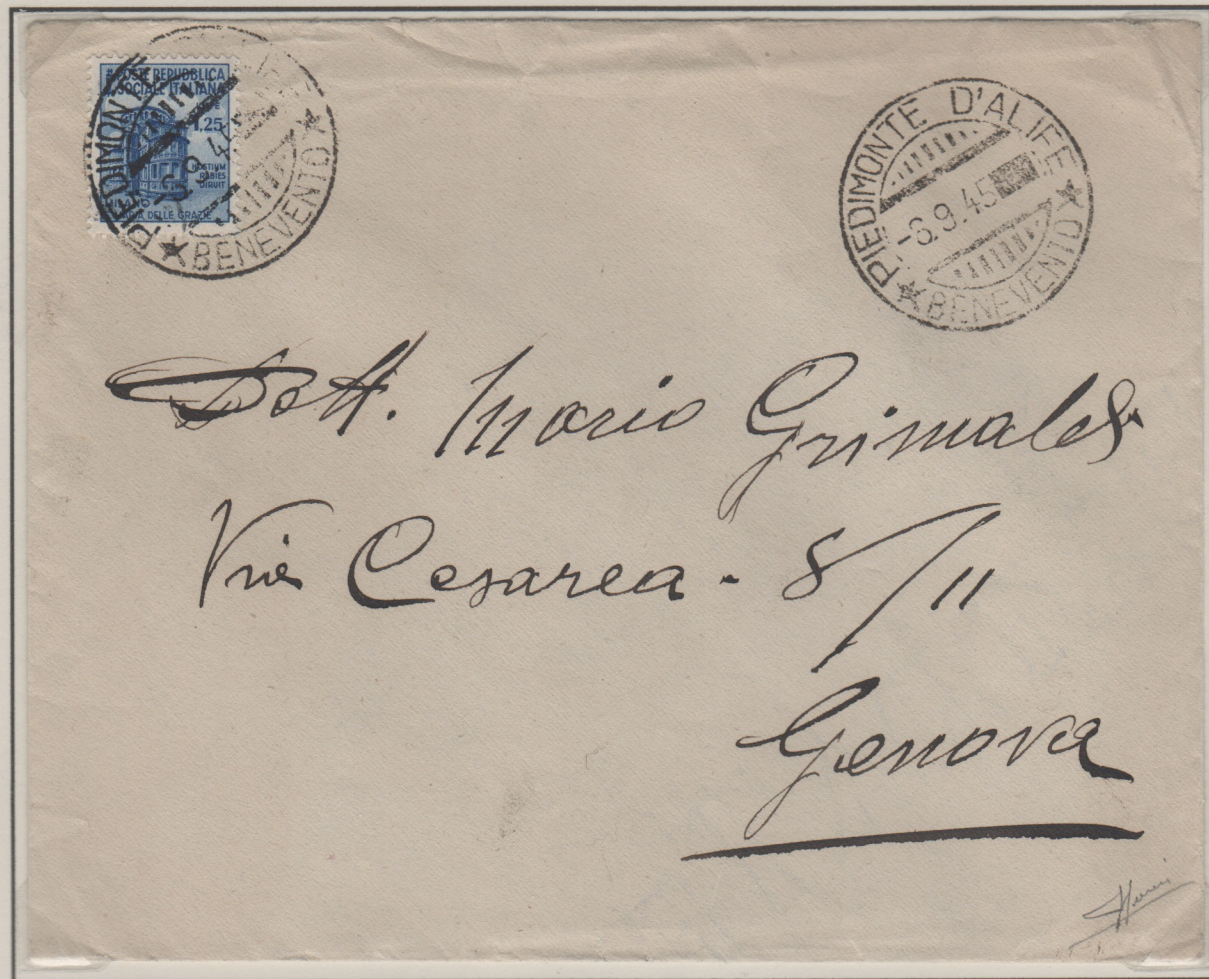 POSTE REPUBBLICA
SOCIALE ITALIANA
1,25
HOSTIUM
RABIES
DIRUIT
DELLE GRAZIE
PIEDIMONTE
9.4
★ BENEVENTO ★
PIEDIMONTE D'ALIFE
-6.9.45
★ BENEVENTO ★
Dott. Mario Grimaldi
Via Cesarea - 8/11
Genova